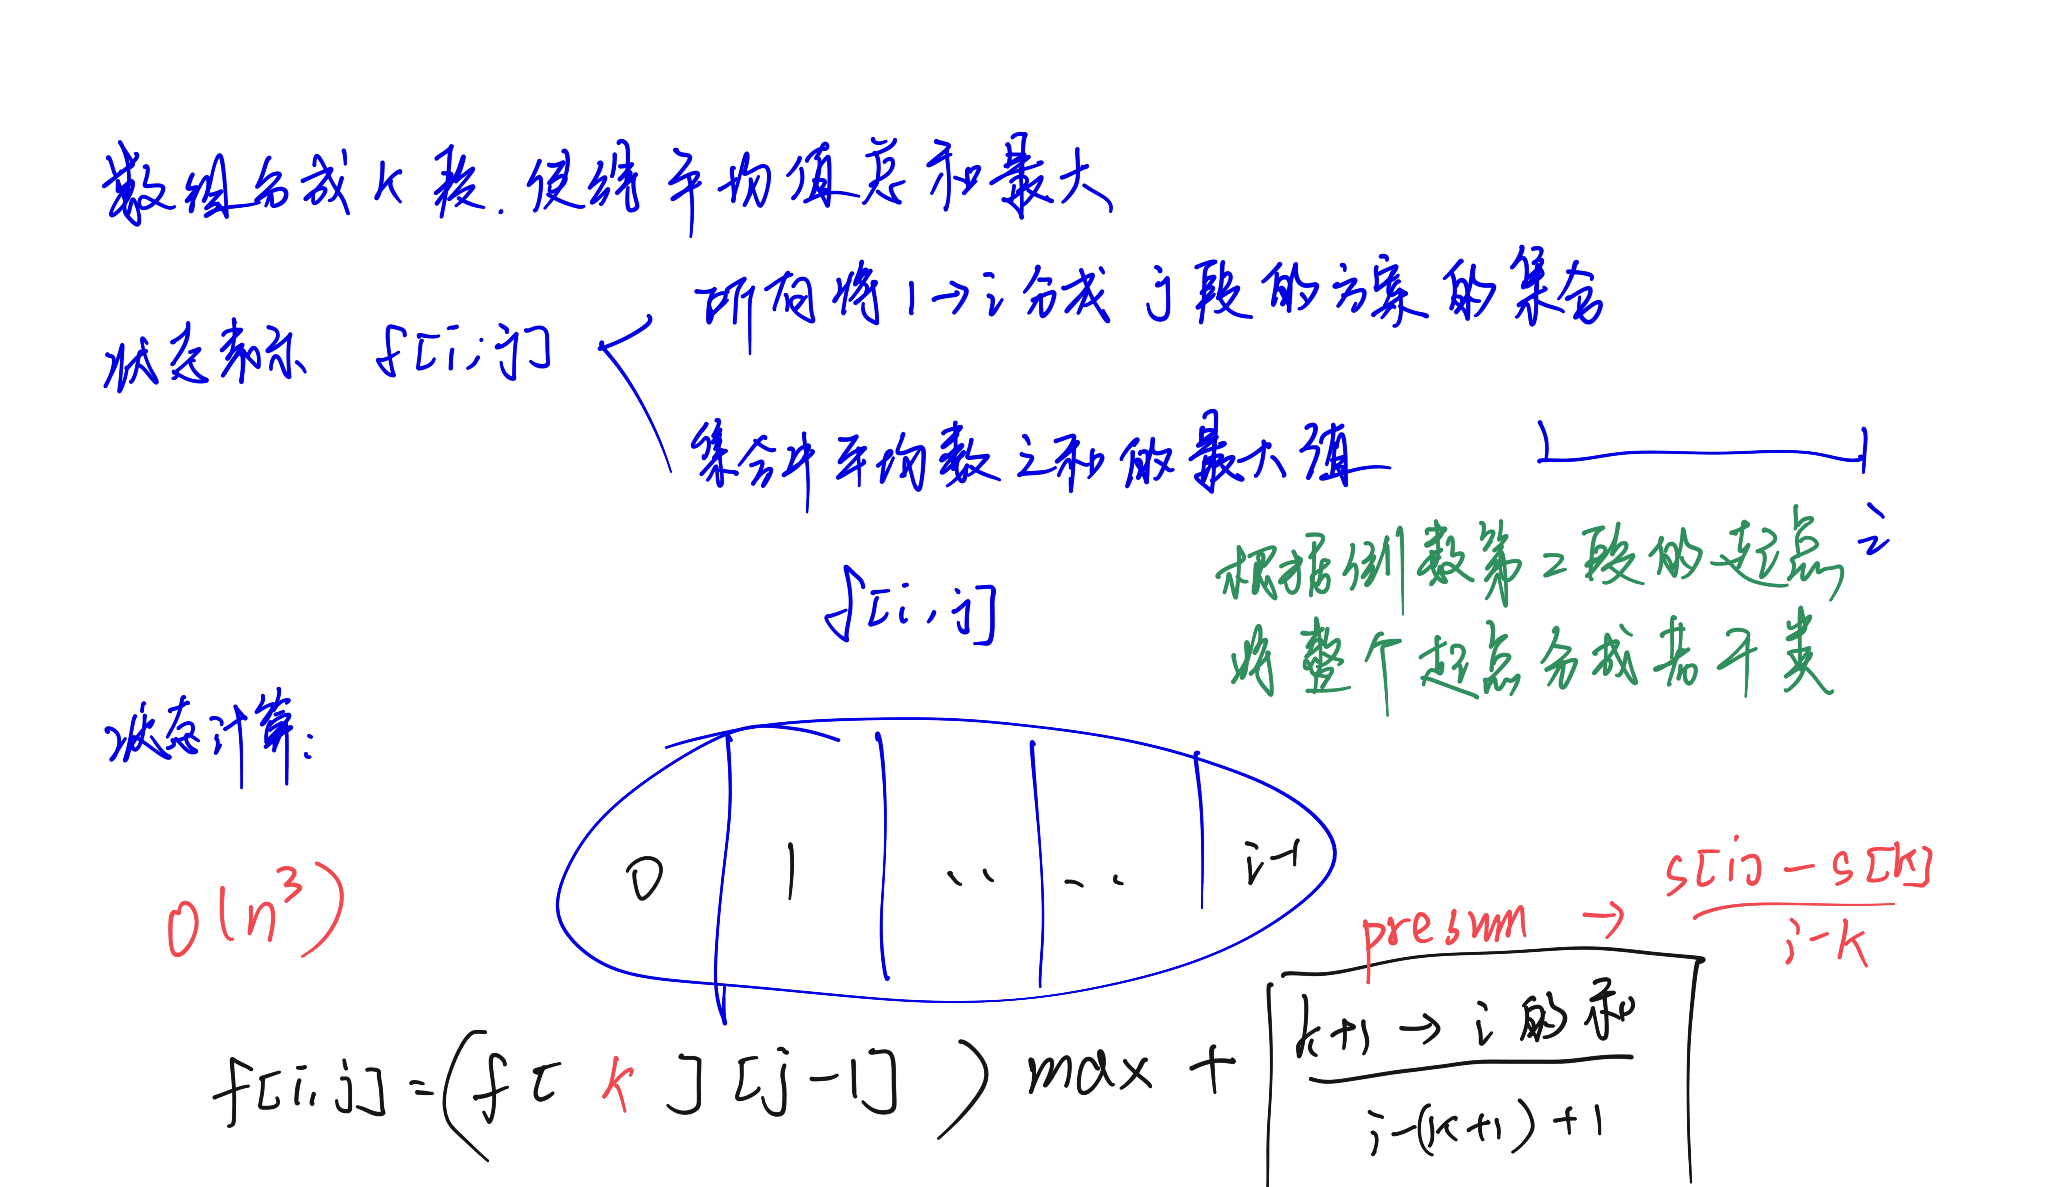 数组分成 K 段. 使得平均值总和最大
所有将 1→i 分成 j 段的方案的集合
状态表示 f[i,j]
集合中平均数之和的最大值
i
根据倒数第2段的起点
f[i,j]
将整个起点分成若干类
状态计算:
0 1 .. .. i-1
O(n³)
presum → s[i]-s[k] / i-k
f[i,j]=(f[ k ][j-1]) max + k+1→i 的和 / i-(k+1)+1